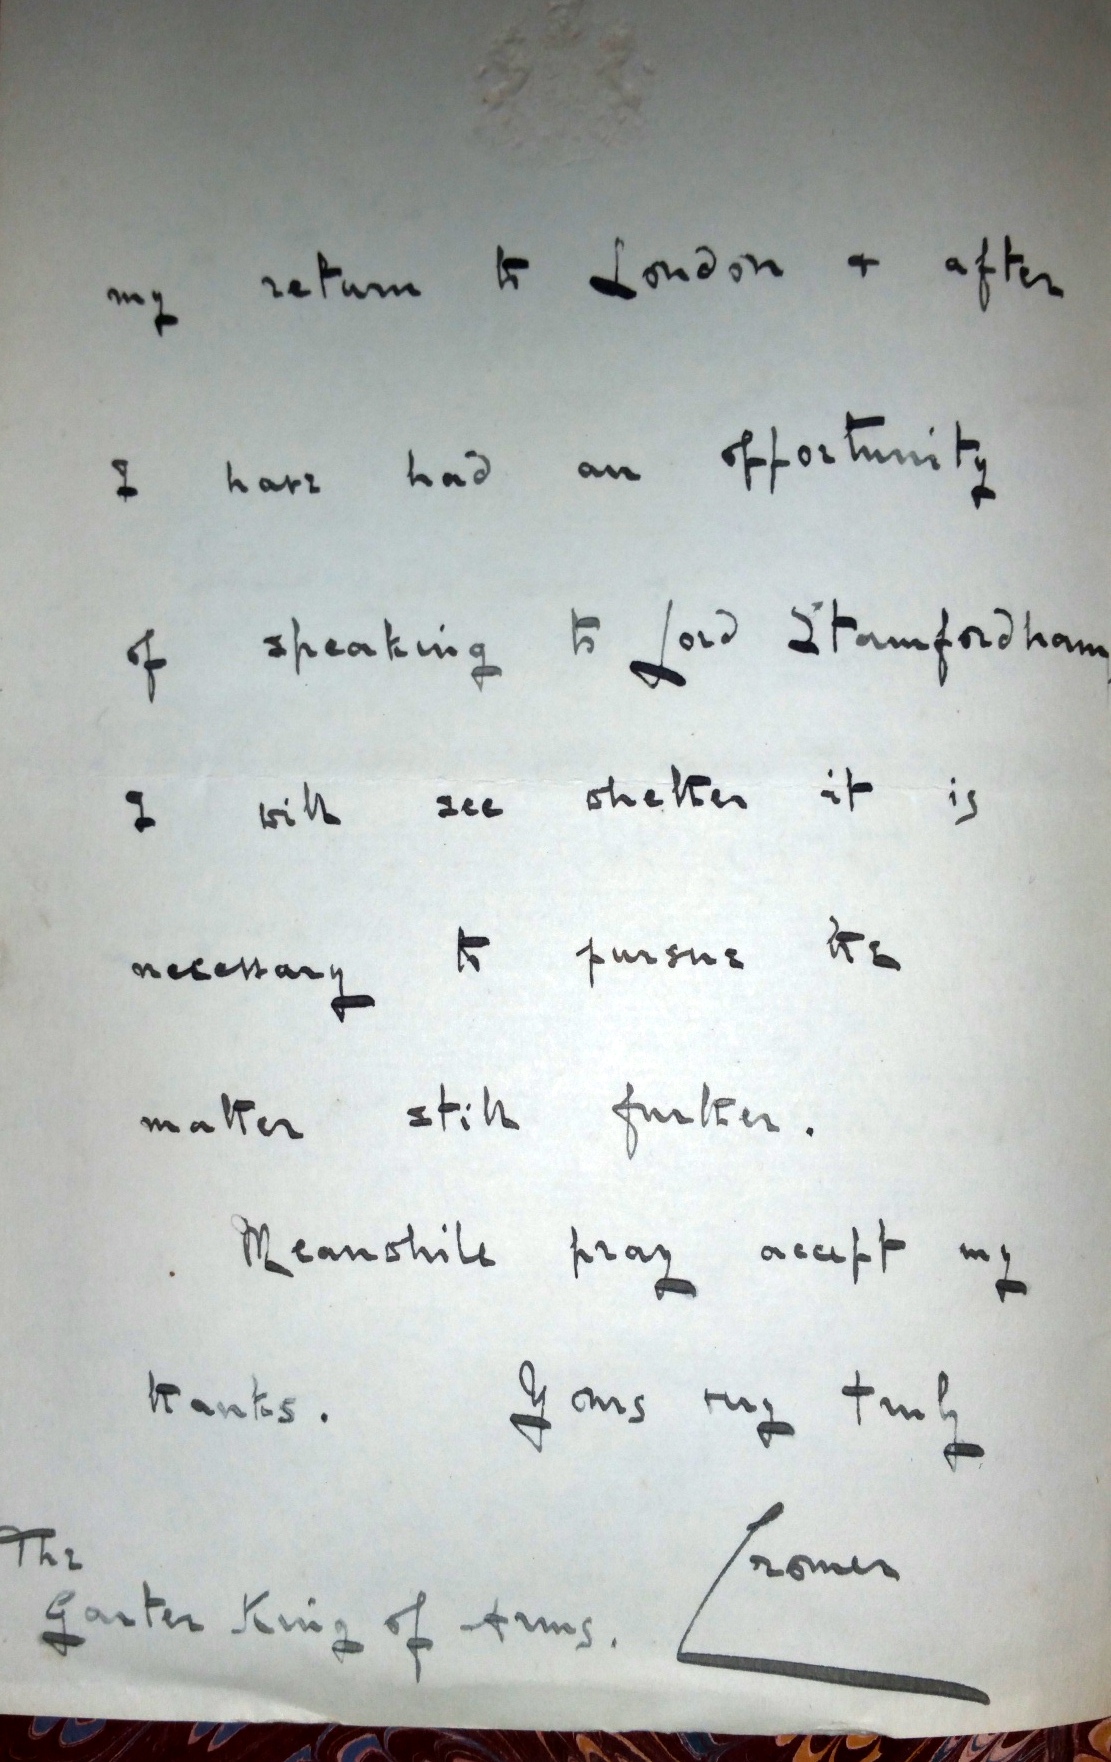 my return to London + after
I have had an opportunity
of speaking to Lord Stamfordham,
I will see whether it is
necessary to pursue the
matter still further.
Meanwhile pray accept my
thanks. Yours very truly
Cromer
The
Garter King of Arms.